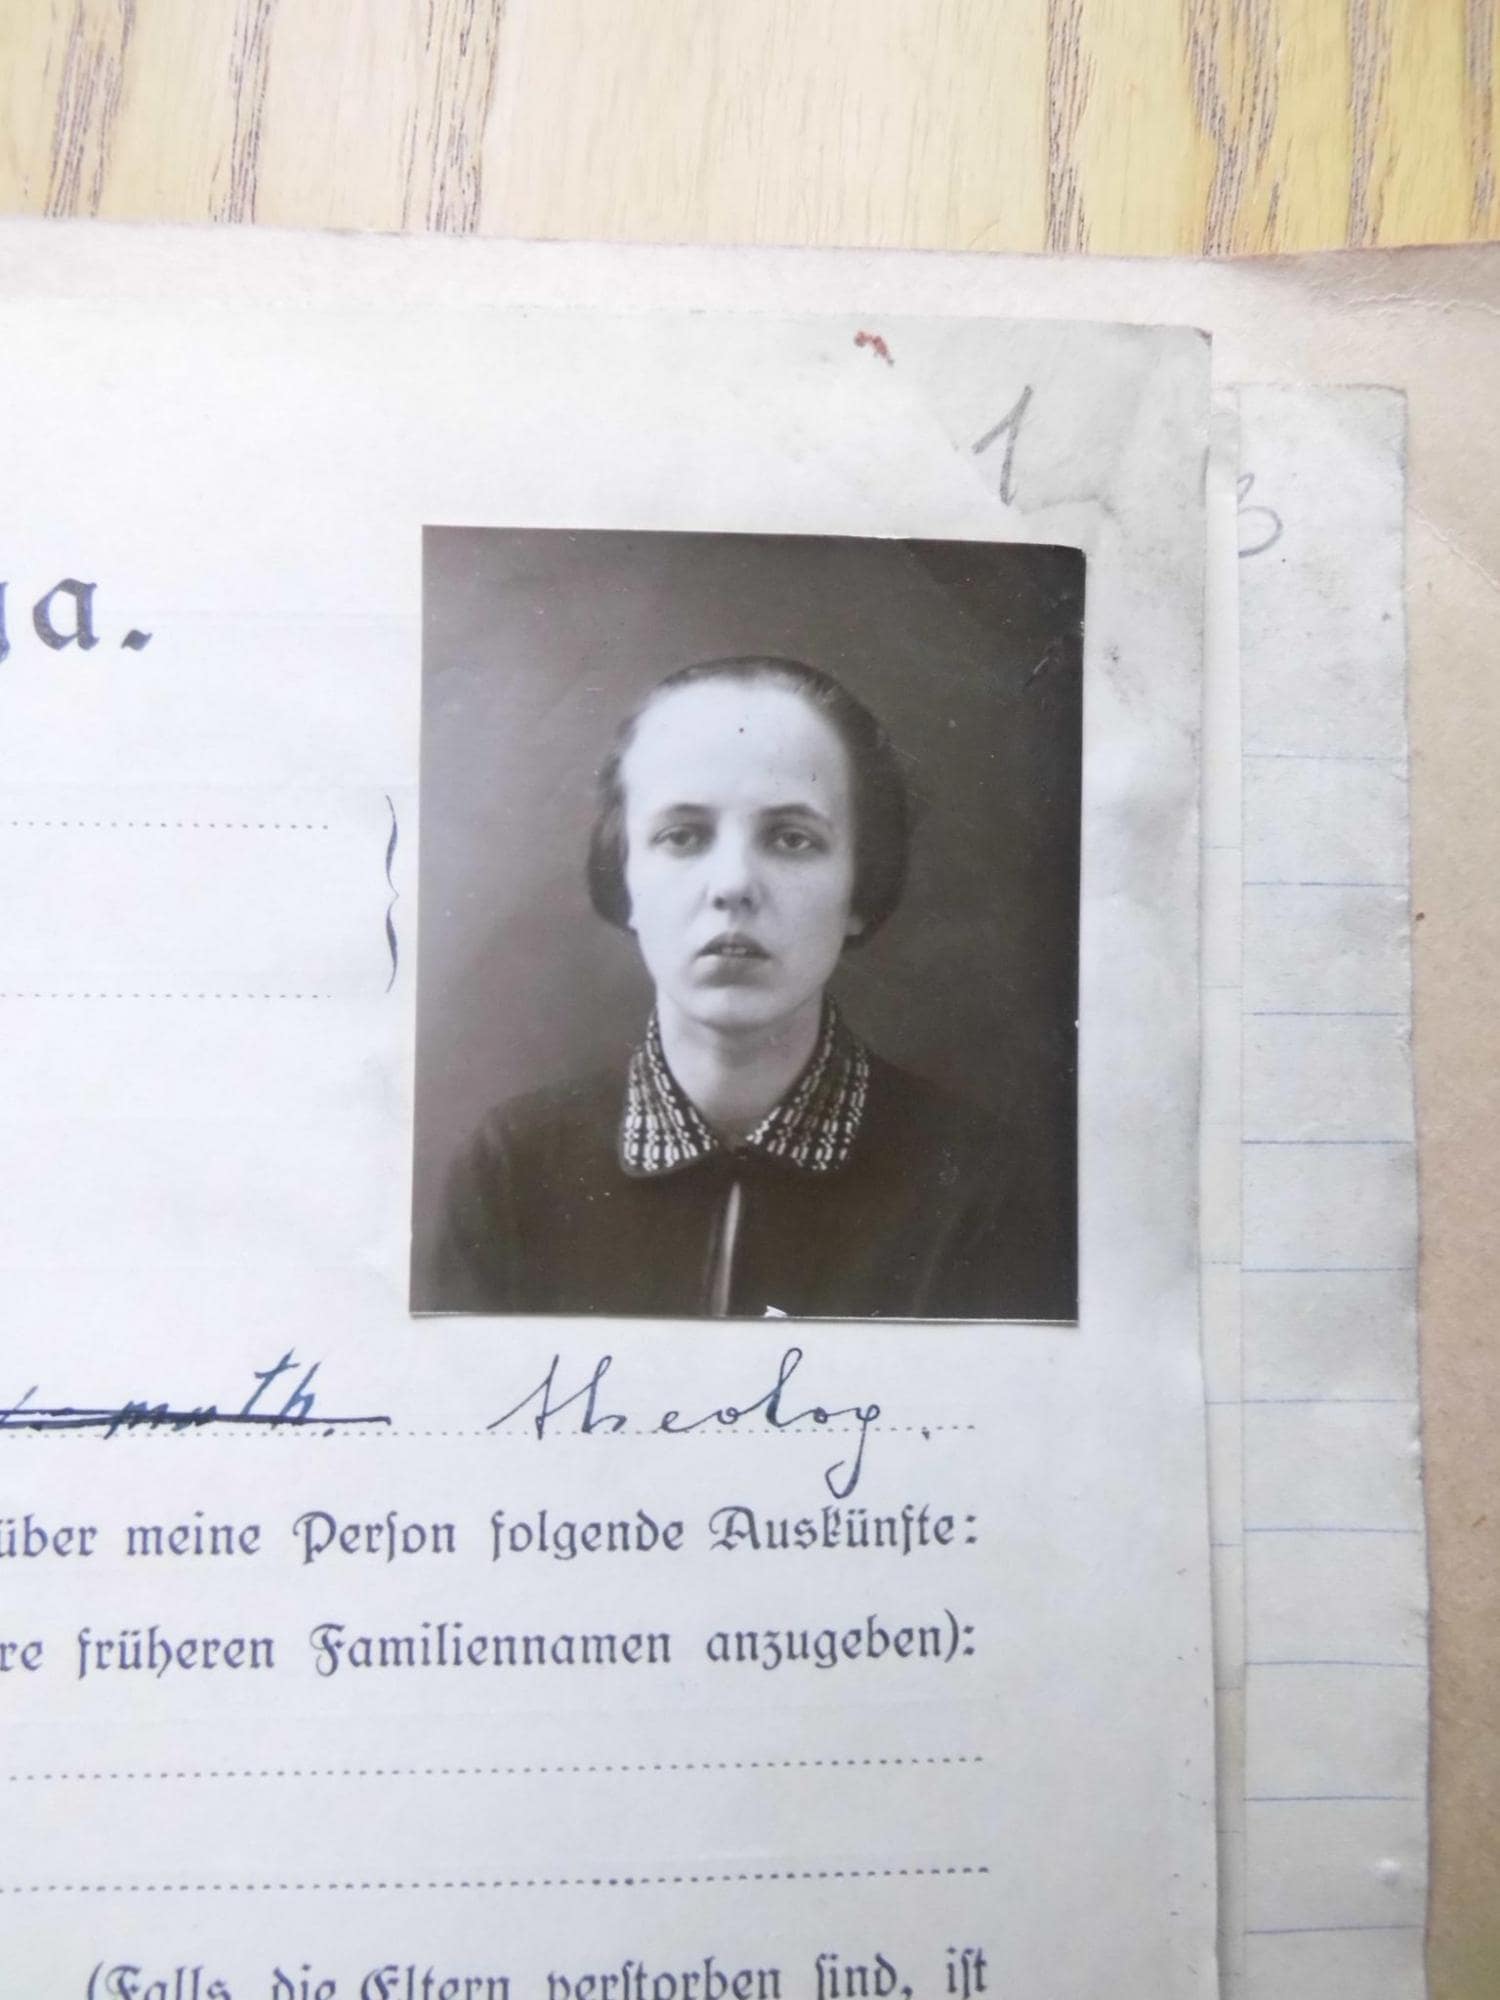 1
3
a.
math. theolog.
über meine Person folgende Auskünfte:
re früheren Familiennamen anzugeben):
(Falls die Eltern verstorben sind, ist